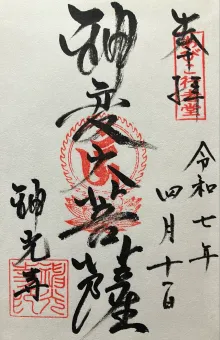 奉拝
令和七年
四月十一日
神変大菩薩
神光寺